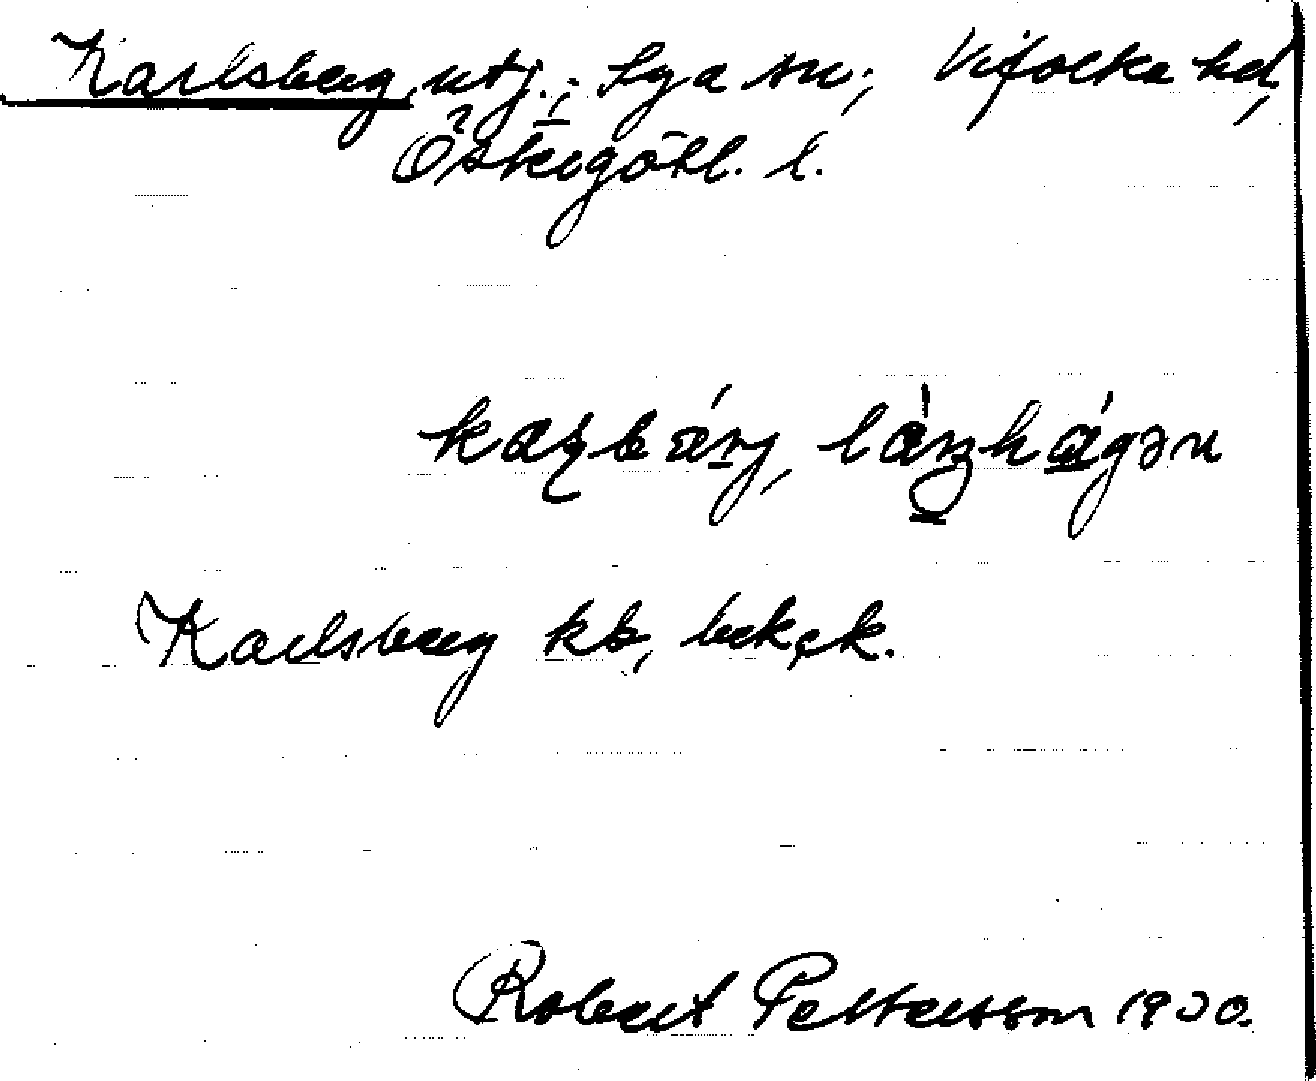 Karlsberg utj.; Lya sn; Vifolka hd,
Östergötl. l.
lázhágən
Karlsberg kb, bek.
Robert Pettersson 1930.